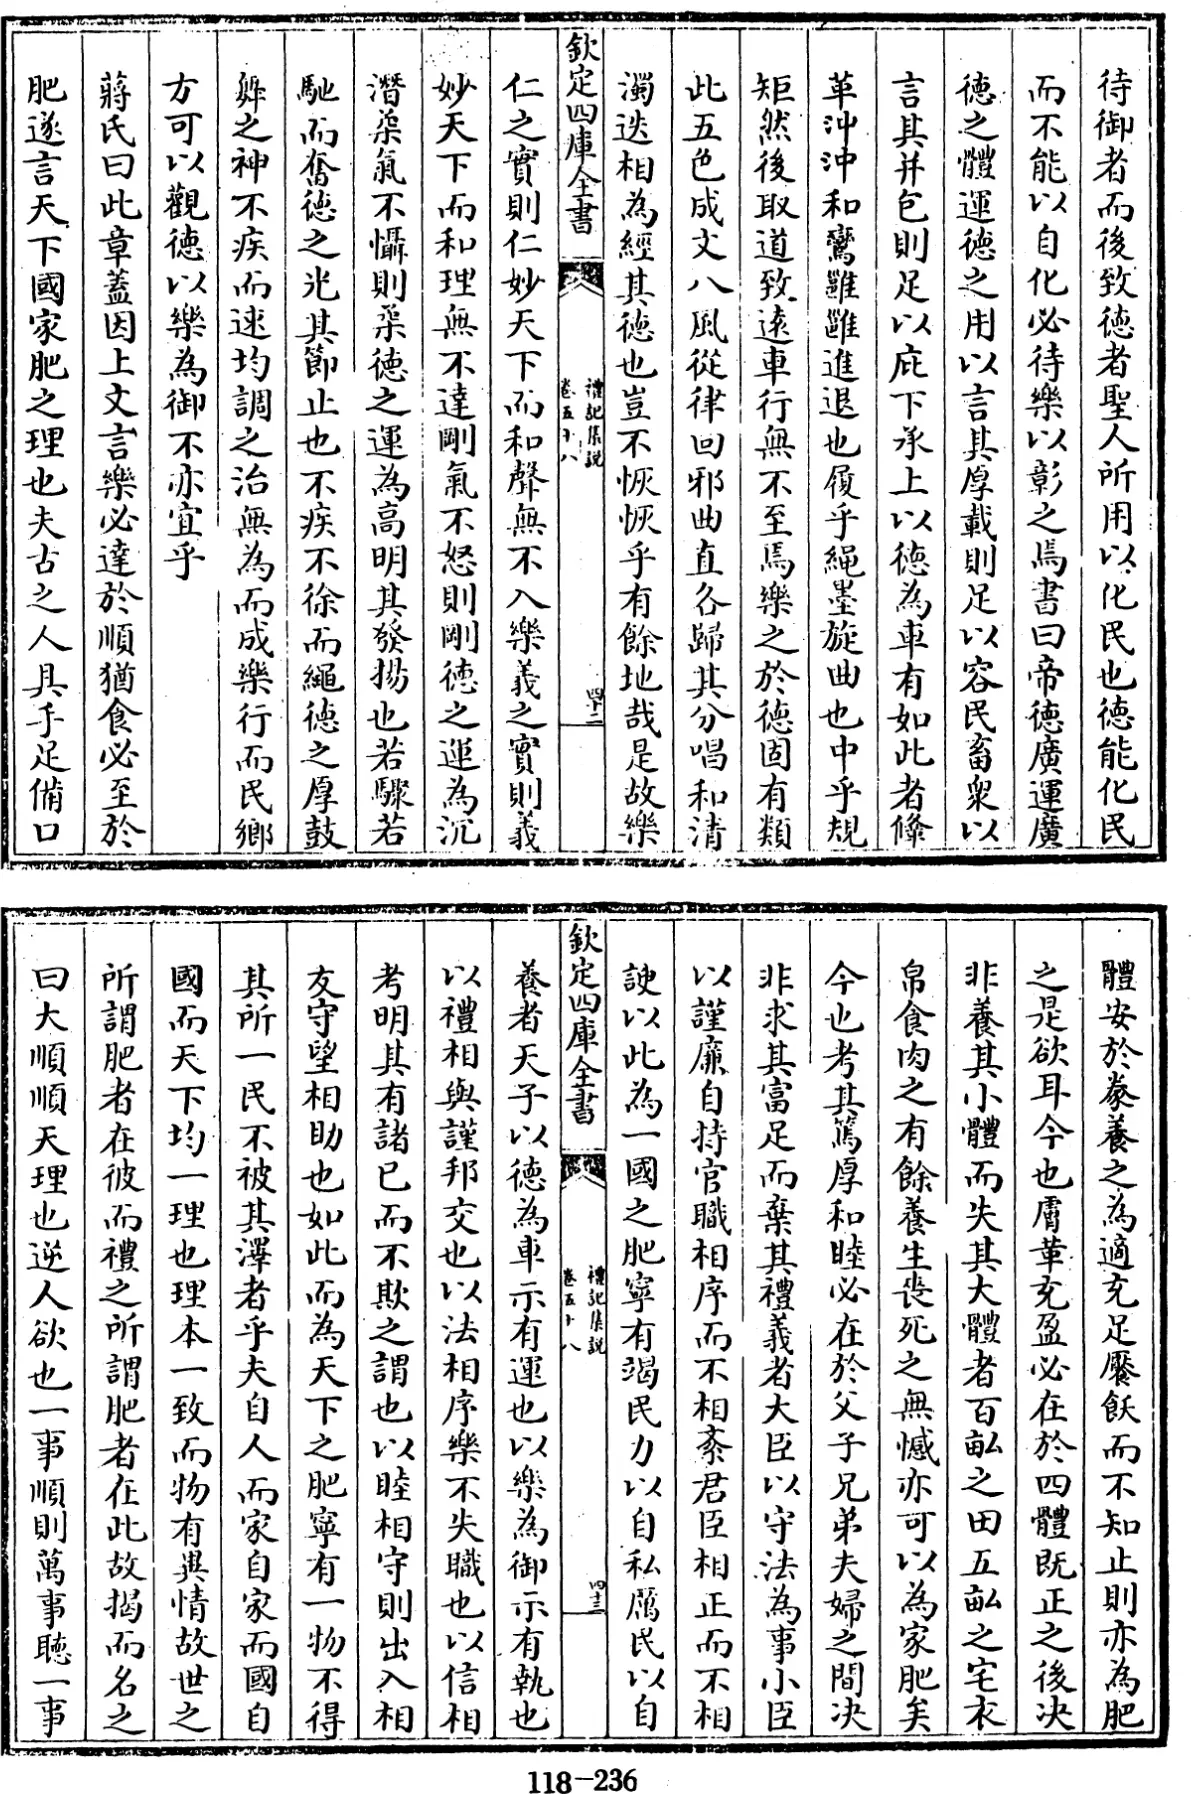 待御者而後致德者聖人所用以化民也德能化民
而不能以自化必待樂以彰之焉書曰帝德廣運廣
德之體運德之用以言其厚載則足以容民畜衆以
言其并包則足以庇下承上以德為車有如此者鞗
革沖沖和鸞雝雝進退也履乎繩墨旋曲也中乎規
矩然後取道致遠車行無不至焉樂之於德固有類
此五色成文八風從律回邪曲直各歸其分唱和清
濁迭相為經其德也豈不恢恢乎有餘地哉是故樂
欽定四庫全書
禮記集説
卷五十八
四十二
仁之實則仁妙天下而和聲無不入樂義之實則義
妙天下而和理無不達剛氣不怒則剛德之運為沉
潛柔氣不懾則柔德之運為高明其發揚也若驟若
馳而奮德之光其節止也不疾不徐而繩德之厚鼓
舞之神不疾而速均調之治無為而成樂行而民鄉
方可以觀德以樂為御不亦宜乎
蔣氏曰此章蓋因上文言樂必達於順猶食必至於
肥遂言天下國家肥之理也夫古之人具手足備口
體安於豢養之為適充足饜飫而不知止則亦為肥
之是欲耳今也膚革充盈必在於四體既正之後決
非養其小體而失其大體者百畝之田五畝之宅衣
帛食肉之有餘養生喪死之無憾亦可以為家肥矣
今也考其篤厚和睦必在於父子兄弟夫婦之間決
非求其富足而棄其禮義者大臣以守法為事小臣
以謹廉自持官職相序而不相紊君臣相正而不相
諛以此為一國之肥寧有竭民力以自私厲民以自
欽定四庫全書
禮記集説
卷五十八
四十三
養者天子以德為車示有運也以樂為御示有執也
以禮相與謹邦交也以法相序樂不失職也以信相
考明其有諸已而不欺之謂也以睦相守則出入相
友守望相助也如此而為天下之肥寧有一物不得
其所一民不被其澤者乎夫自人而家自家而國自
國而天下均一理也理本一致而物有異情故世之
所謂肥者在彼而禮之所謂肥者在此故揭而名之
曰大順順天理也逆人欲也一事順則萬事聽一事
118-236